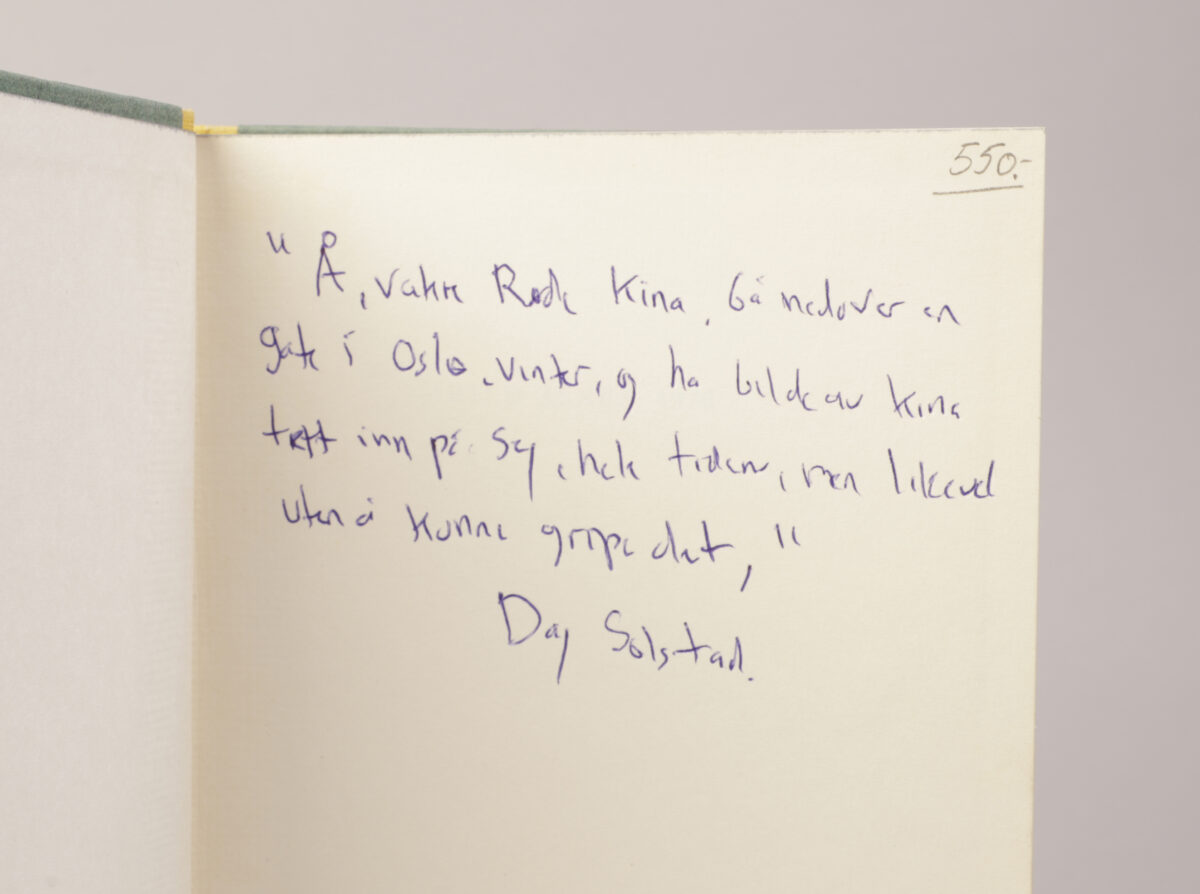 550.-
"Å, vakre Røde Kina. Gå nedover en
gate i Oslo, vinter, og ha bildet av Kina
tett inn på seg, hele tiden, men likevel
uten å kunne gripe det,"
Dag Solstad.